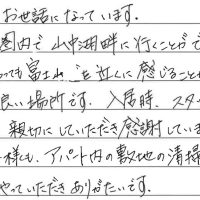 お世話になっています。
圏内で山中湖畔に行くことがで
っても富士山を近くに感じること
良い場所です。入居時、スタ
親切にしていただき感謝していま
様も、アパート内の敷地の清掃
やっていただきありがたいです。